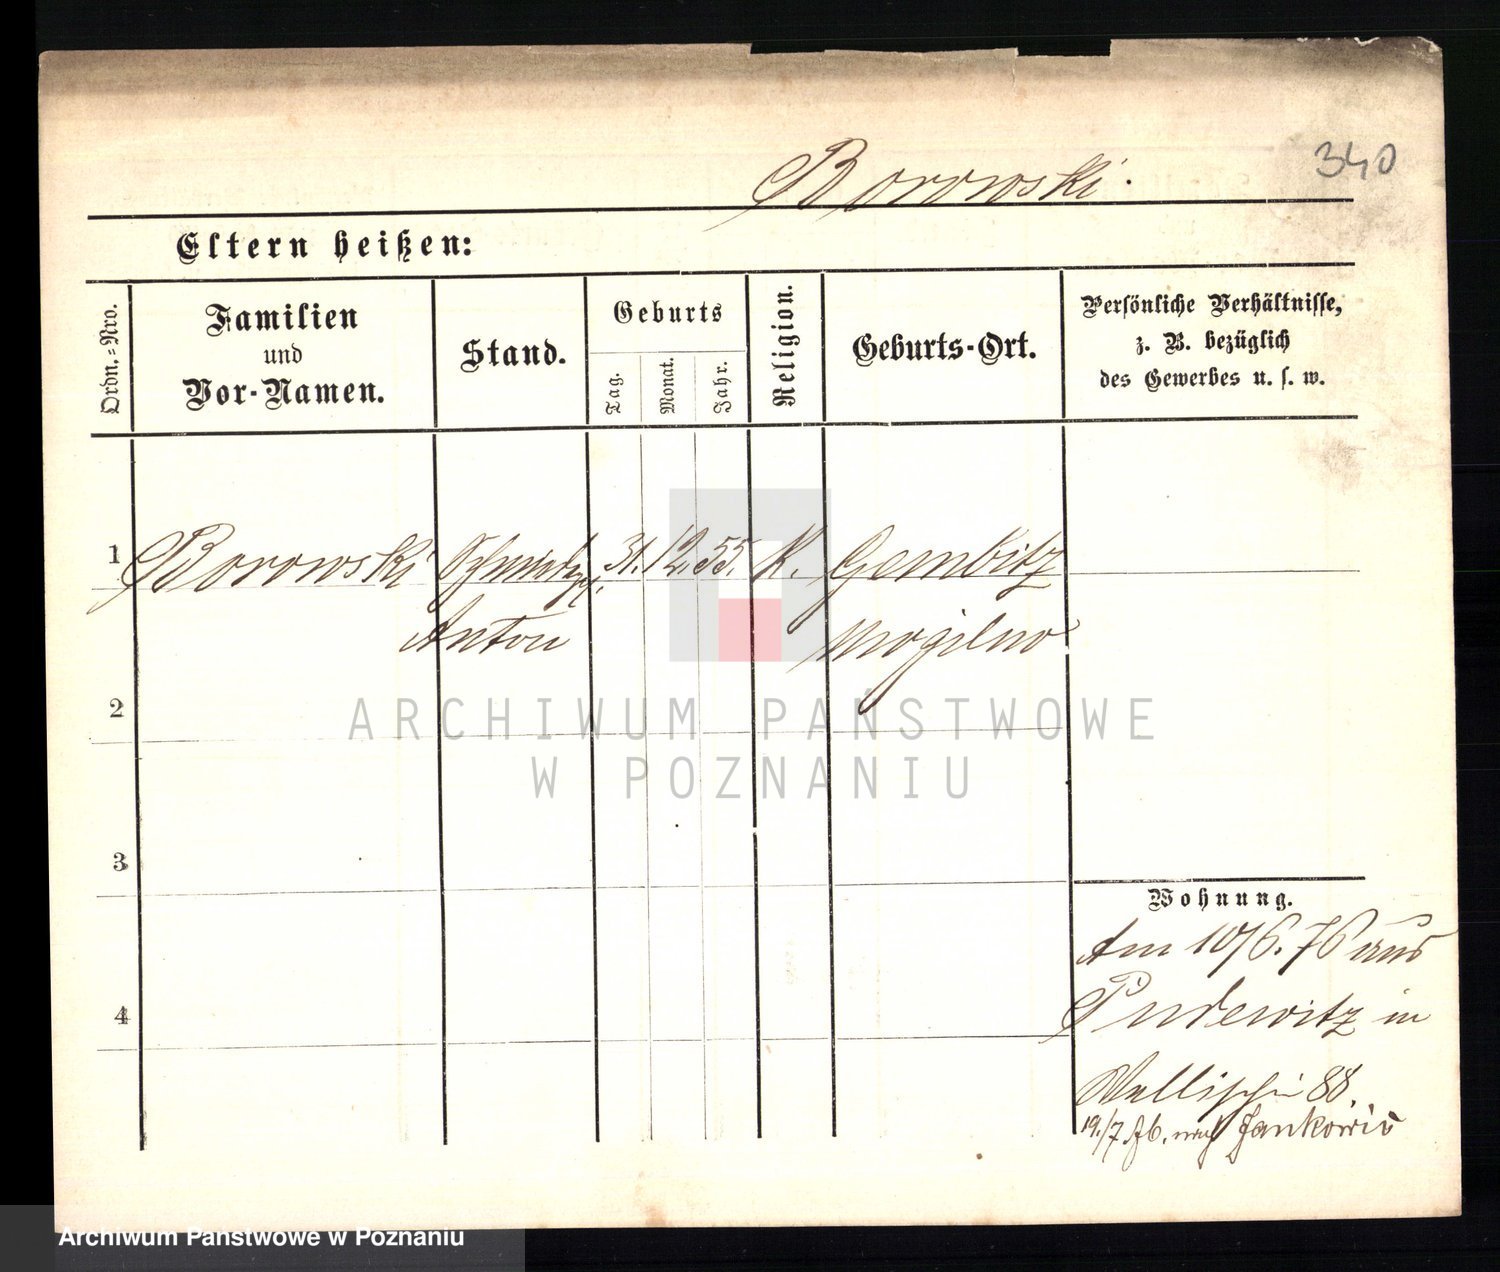 340
Borowski.
Eltern heißen:
Ordn.=Nro.
Familien
und
Vor-Namen.
Stand.
Geburts
Tag.
Monat.
Jahr.
Religion.
Geburts-Ort.
Persönliche Verhältnisse,
z. B. bezüglich
des Gewerbes u. s. w.
1 Borowski 31. 12. 55. K. Gembitz
Anton Mogilno
2
ARCHIWUM PAŃSTWOWE
W POZNANIU
3
Wohnung.
Am 10/6. 76 aus
4
Pudewitz in
Wallischei 88.
19./7. 76. nach Jankowic
Archiwum Państwowe w Poznaniu